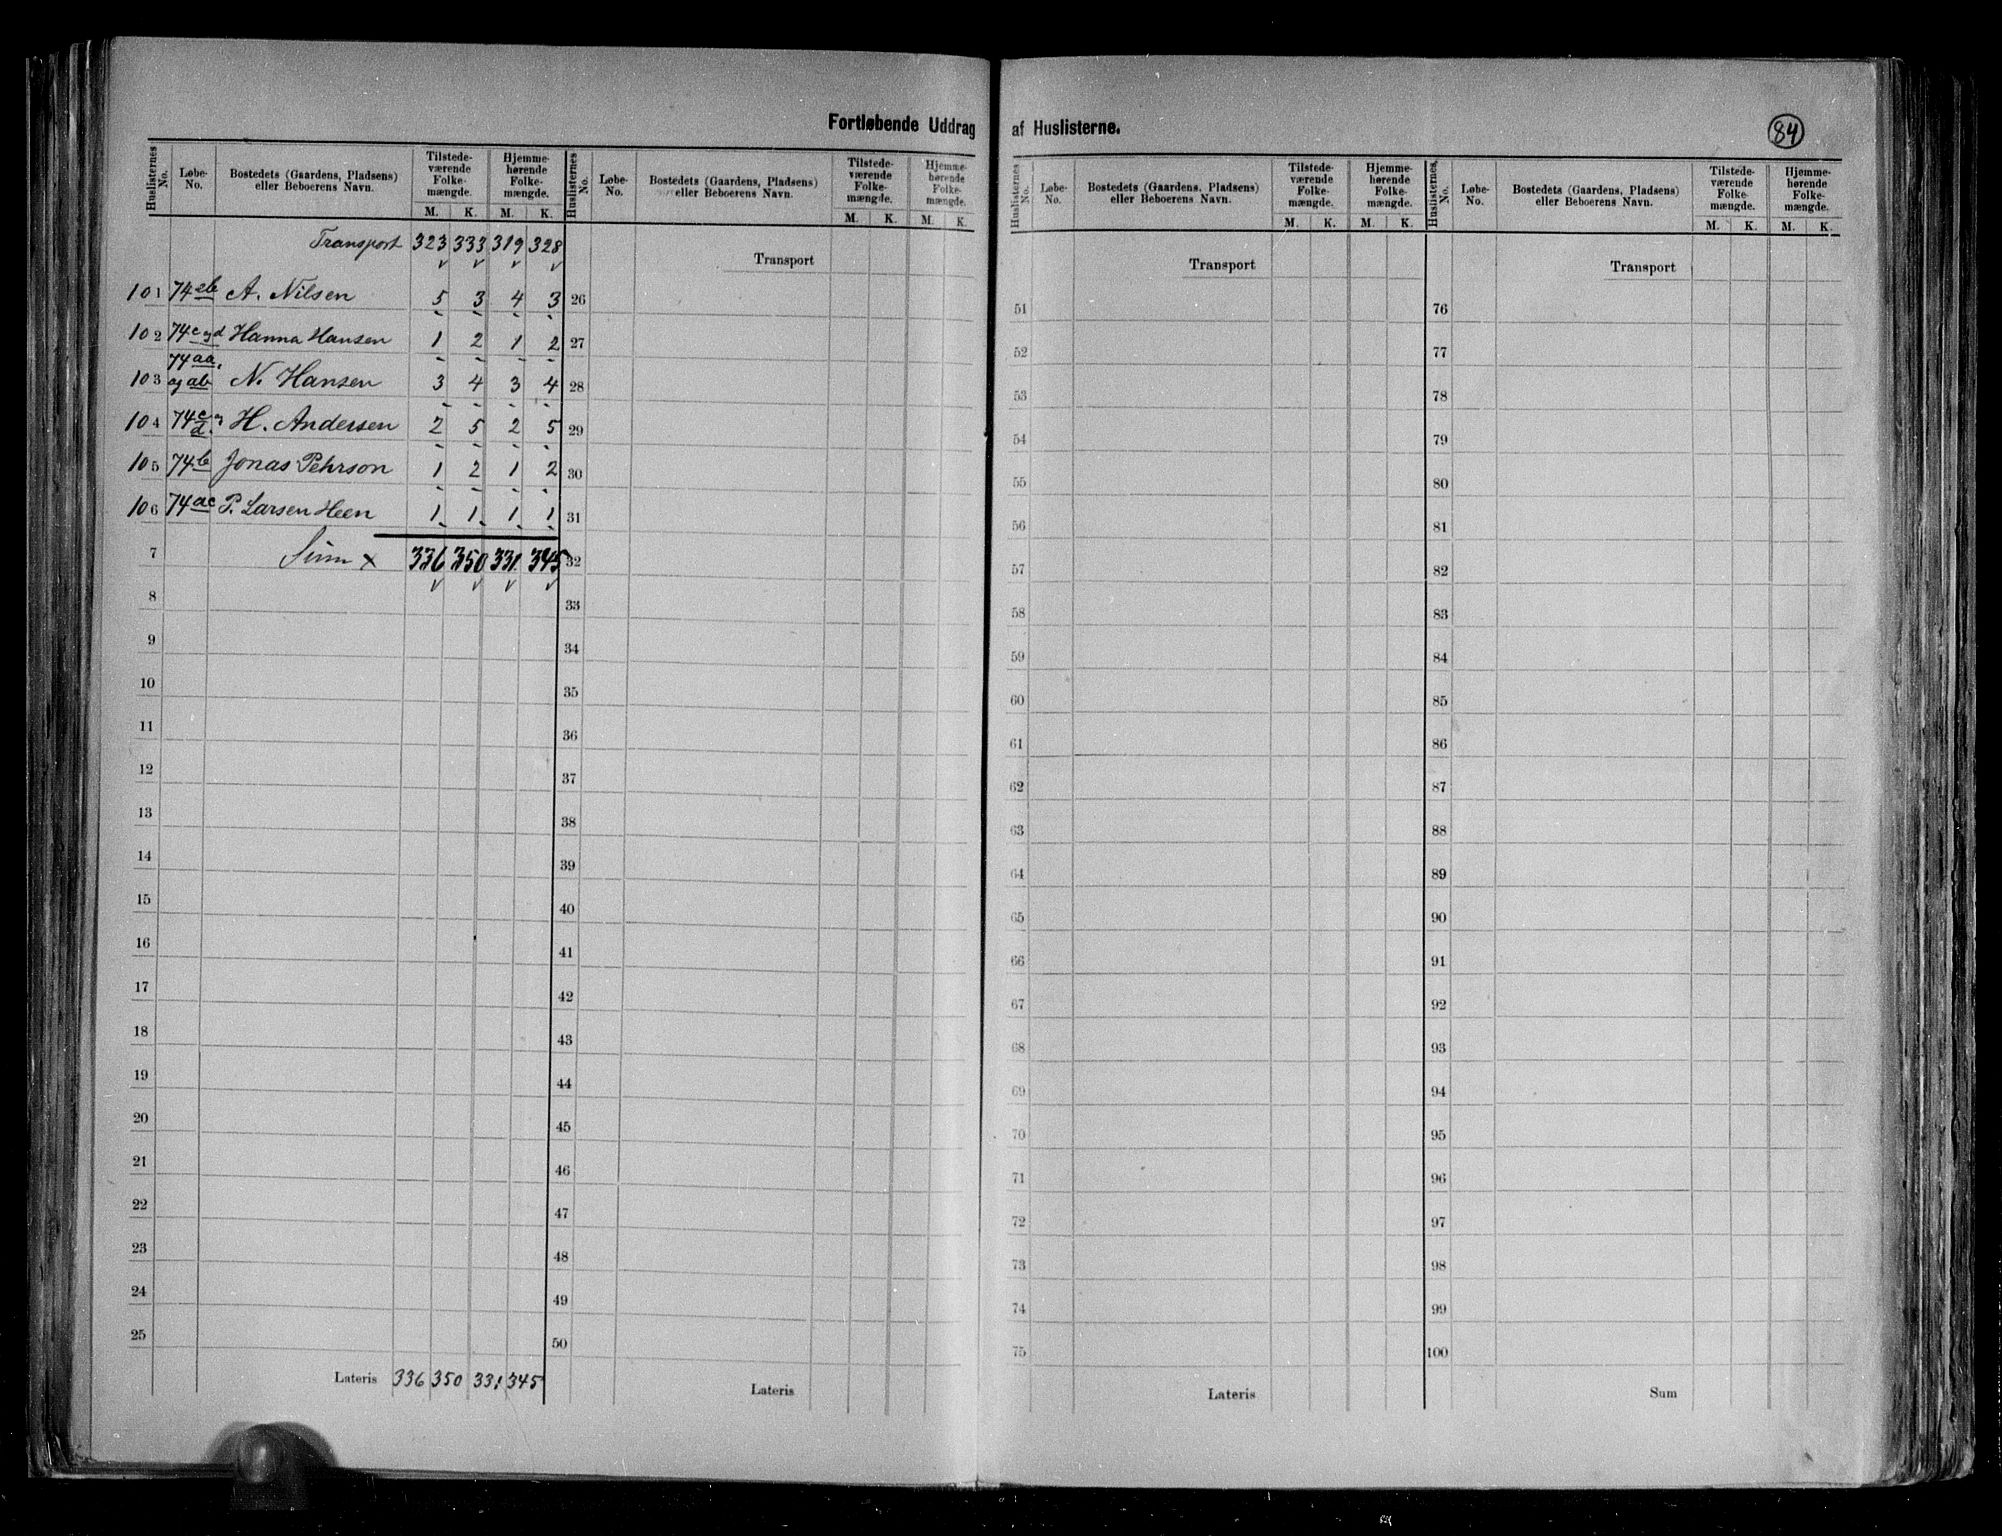 Fortløbende Uddrag af Huslisterne.
84
Huslisternes No. Løbe-No. Bostedets (Gaardens, Pladsens) eller Beboerens Navn. Tilstedeværende Folkemængde. M. K. Hjemmehørende Folkemængde. M. K.
Transport 323 333 319 328
101 A. Nilsen 5 3 4 3
102 74 c og d Hanna Hansen 1 2 1 2
103 74 aa. og ab N. Hansen 3 4 3 4
104 74 H. Andersen 2 5 2 5
105 74 b Jonas Pehrson 1 2 1 2
106 74 ac P. Larsen Heen 1 1 1 1
7 Sum x 336 350 331 345
8
9
10
11
12
13
14
15
16
17
18
19
20
21
22
23
24
25
Lateris 336 350 331 345
Huslisternes No. Løbe-No. Bostedets (Gaardens, Pladsens) eller Beboerens Navn. Tilstedeværende Folkemængde. M. K. Hjemmehørende Folkemængde. M. K.
Transport
26
27
28
29
30
31
32
33
34
35
36
37
38
39
40
41
42
43
44
45
46
47
48
49
50
Lateris
Huslisternes No. Løbe-No. Bostedets (Gaardens, Pladsens) eller Beboerens Navn. Tilstedeværende Folkemængde. M. K. Hjemmehørende Folkemængde. M. K.
Transport
51
52
53
54
55
56
57
58
59
60
61
62
63
64
65
66
67
68
69
70
71
72
73
74
75
Lateris
Huslisternes No. Løbe-No. Bostedets (Gaardens, Pladsens) eller Beboerens Navn. Tilstedeværende Folkemængde. M. K. Hjemmehørende Folkemængde. M. K.
Transport
76
77
78
79
80
81
82
83
84
85
86
87
88
89
90
91
92
93
94
95
96
97
98
99
100
Sum